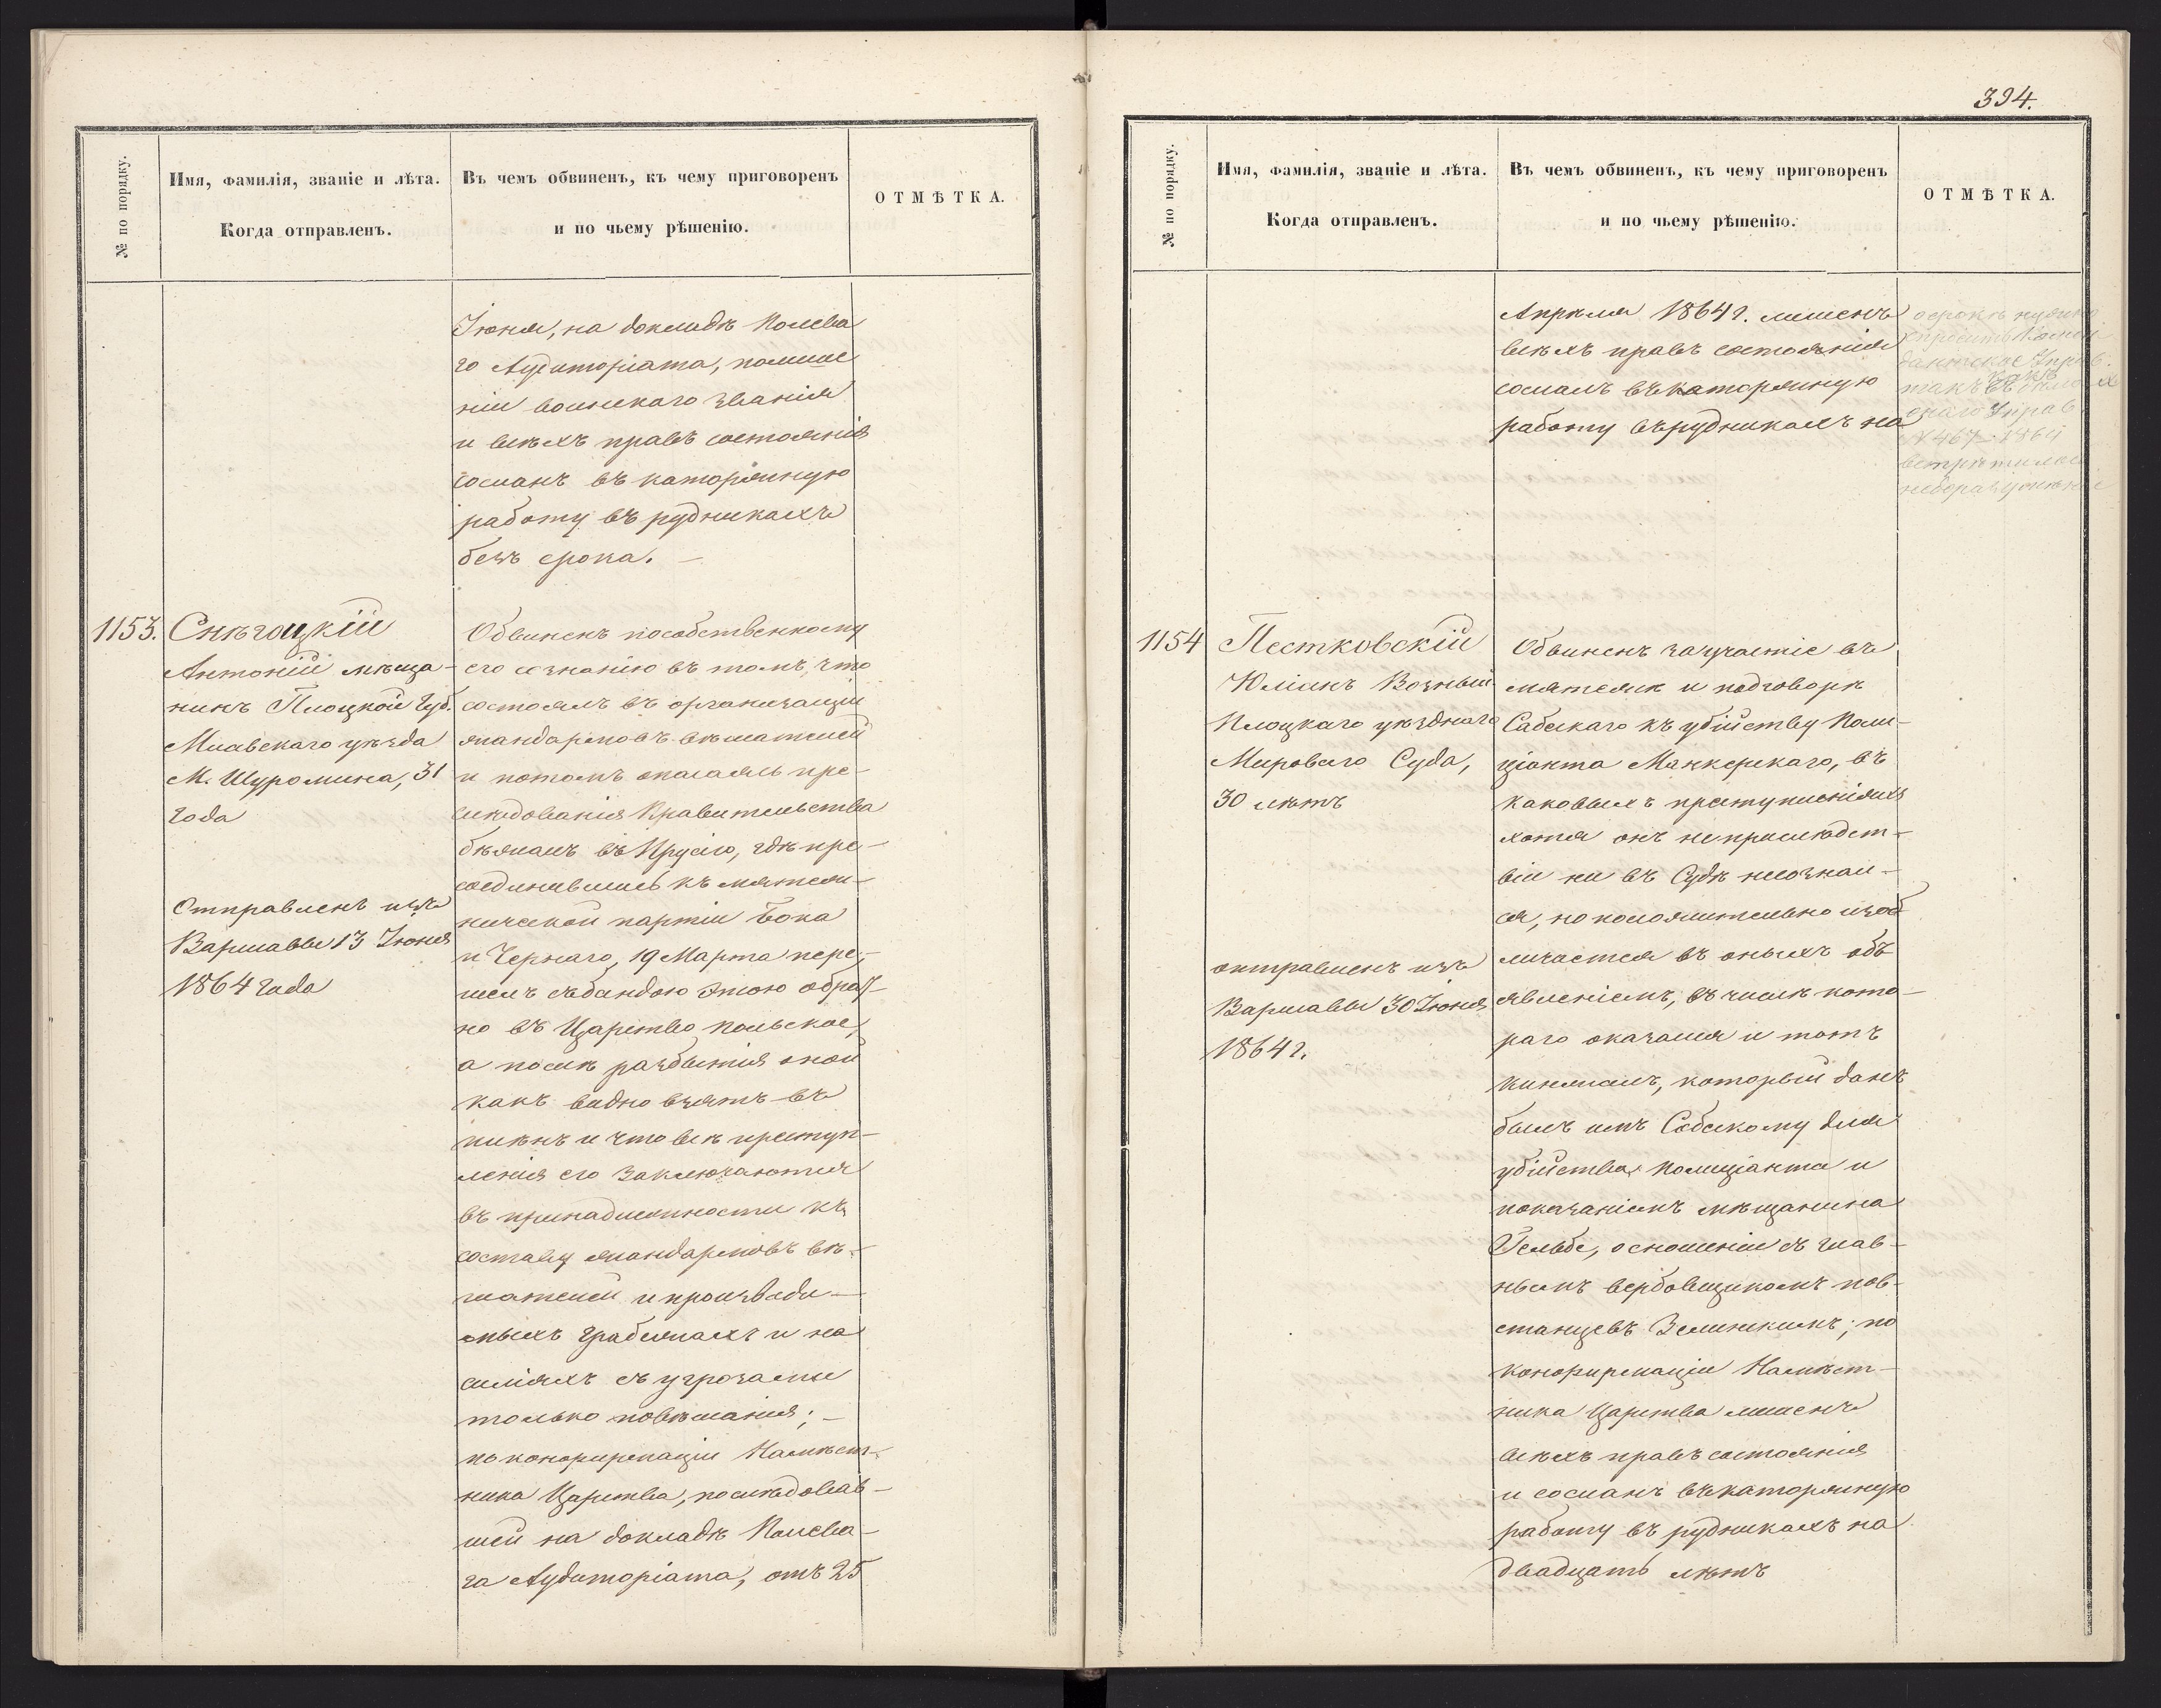 № по порядку.
Имя, Фамилія, званіе и лѣта.
Когда отправленъ.
Въ чемъ обвиненъ, къ чему приговоренъ
и по чьему рѣшенію.
ОТМѢТКА.
Іюня, на докладѣ Полева
го Аудиторіата, по лише
ніи воинскаго званія
и всѣхъ правъ состоянія
сосланъ въ каторжную
работу въ рудникахъ
безъ срока. —
1153.
Снѣгоцкій
Антоній мѣща-
нинъ Плоцкой Губ.
Млавскаго уѣзда
М. Шуромина, 31
года
Отправленъ изъ
Варшавы 13 Іюня
1864 года
Обвиненъ по собственному
его сознанію въ томъ, что
состоялъ въ организаціи
жандармовъ-вѣшателей
и потомъ опасаясь пре-
слѣдованія Правительства
бѣжалъ въ Пруссію, гдѣ при-
соединившись къ мятеж-
нической партіи Бока
и Чернаго, 19 Марта пере-
шелъ съ бандою этою обрат-
но въ Царство Польское,
а послѣ разбитія оной
какъ видно взятъ въ
плѣнъ и что всѣ преступ-
ленія его заключаются
въ принадлежности къ
составу жандармовъ вѣ-
шателей и производи-
мыхъ грабежахъ и на
силіяхъ съ угрозами
только повѣшанія; —
по конфирмаціи Намѣст-
ника Царства, послѣдовав-
шей на докладѣ Полева-
го Аудиторіата, отъ 25
394.
№ по порядку.
Имя, Фамилія, званіе и лѣта.
Когда отправленъ.
Въ чемъ обвиненъ, къ чему приговоренъ
и по чьему рѣшенію.
ОТМѢТКА.
Апрѣля 1864 г. лишенъ
всѣхъ правъ состоянія
сосланъ въ каторжную
работу въ рудникахъ на
о срокѣ нужно
спросить Комен
дантское Управ.
такъ какъ
Управ.
№ 467 - 1864
встрѣтилось
недоразумѣніе
1154
Пестковскій
Юліанъ Возный
Плоцкаго уѣзднаго
Мироваго Суда,
30 лѣтъ
отправленъ изъ
Варшавы 30 Іюня
1864 г.
Обвиненъ за участіе въ
мятежѣ и подговорѣ
Сабскаго къ убійству Поли-
ціанта Манкерскаго, въ
каковыхъ преступленіяхъ
хотя онъ не при слѣдст-
віи ни въ Судѣ не сознал-
ся, но положительно изоб
личается въ оныхъ объ
явленіемъ, въ числѣ кото-
раго оказался и тотъ
кинжалъ, который данъ
былъ имъ Собскому для
убійства полиціанта и
показаніемъ мѣщанина
Гельбе, о сношеніи съ глав-
нымъ вербовщикомъ пов-
станцевъ Зелинскимъ; по
конфирмаціи Намѣст-
ника Царства лишенъ
всѣхъ правъ состоянія
и сосланъ въ каторжную
работу въ рудникахъ на
двадцать лѣтъ